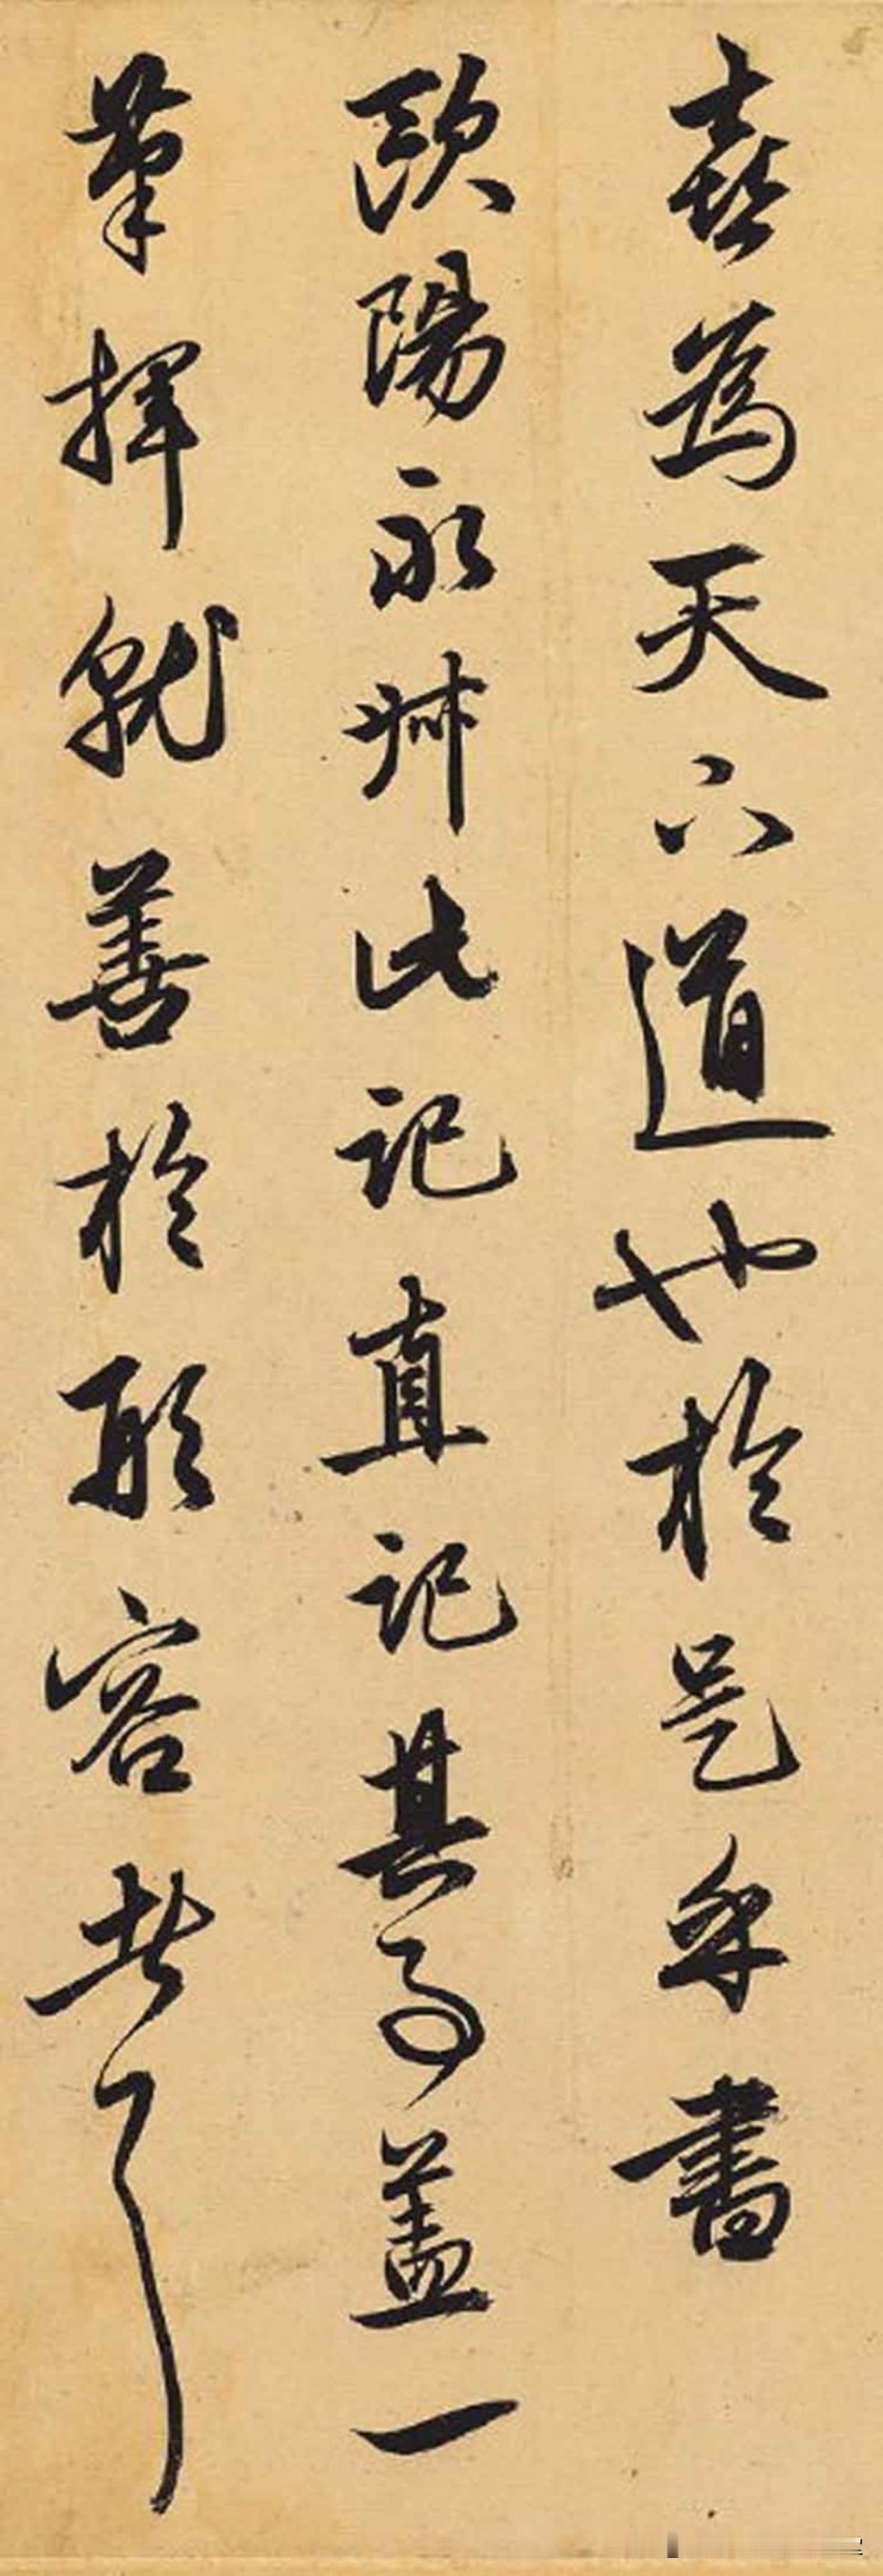 喜為天下道也於是乎書
歐陽永叔此記直記其事蓋一
筆揮就善於形容者耳